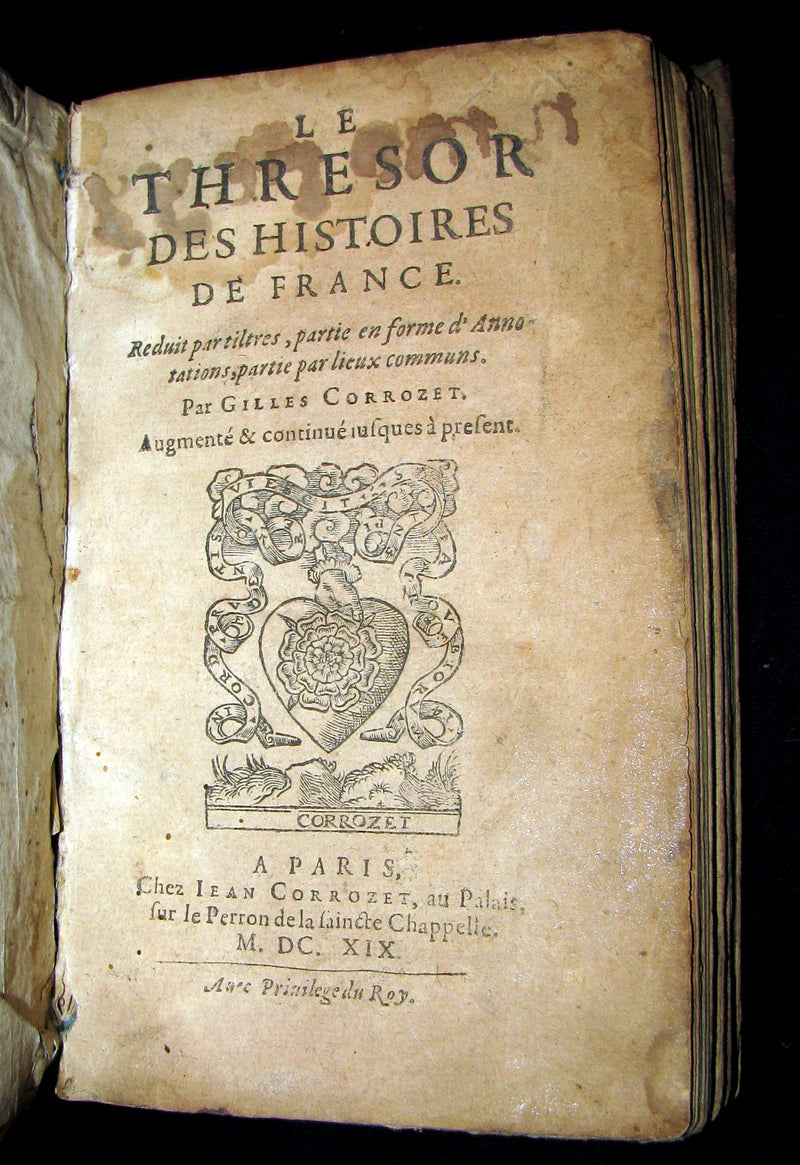 LE
THRESOR
DES HISTOIRES
DE FRANCE.
Reduit par tiltres, partie en forme d'Anno-
tations, partie par lieux communs.
Par GILLES CORROZET.
Augmenté & continué iuſques à preſent.
IN CORDE PRVDENTIS
REVIESCIT
SAPIENTIA
CORROZET
A PARIS,
Chez IEAN CORROZET, au Palais,
ſur le Perron de la ſaincte Chappelle.
M. DC. XIX
Auec Priuilege du Roy.